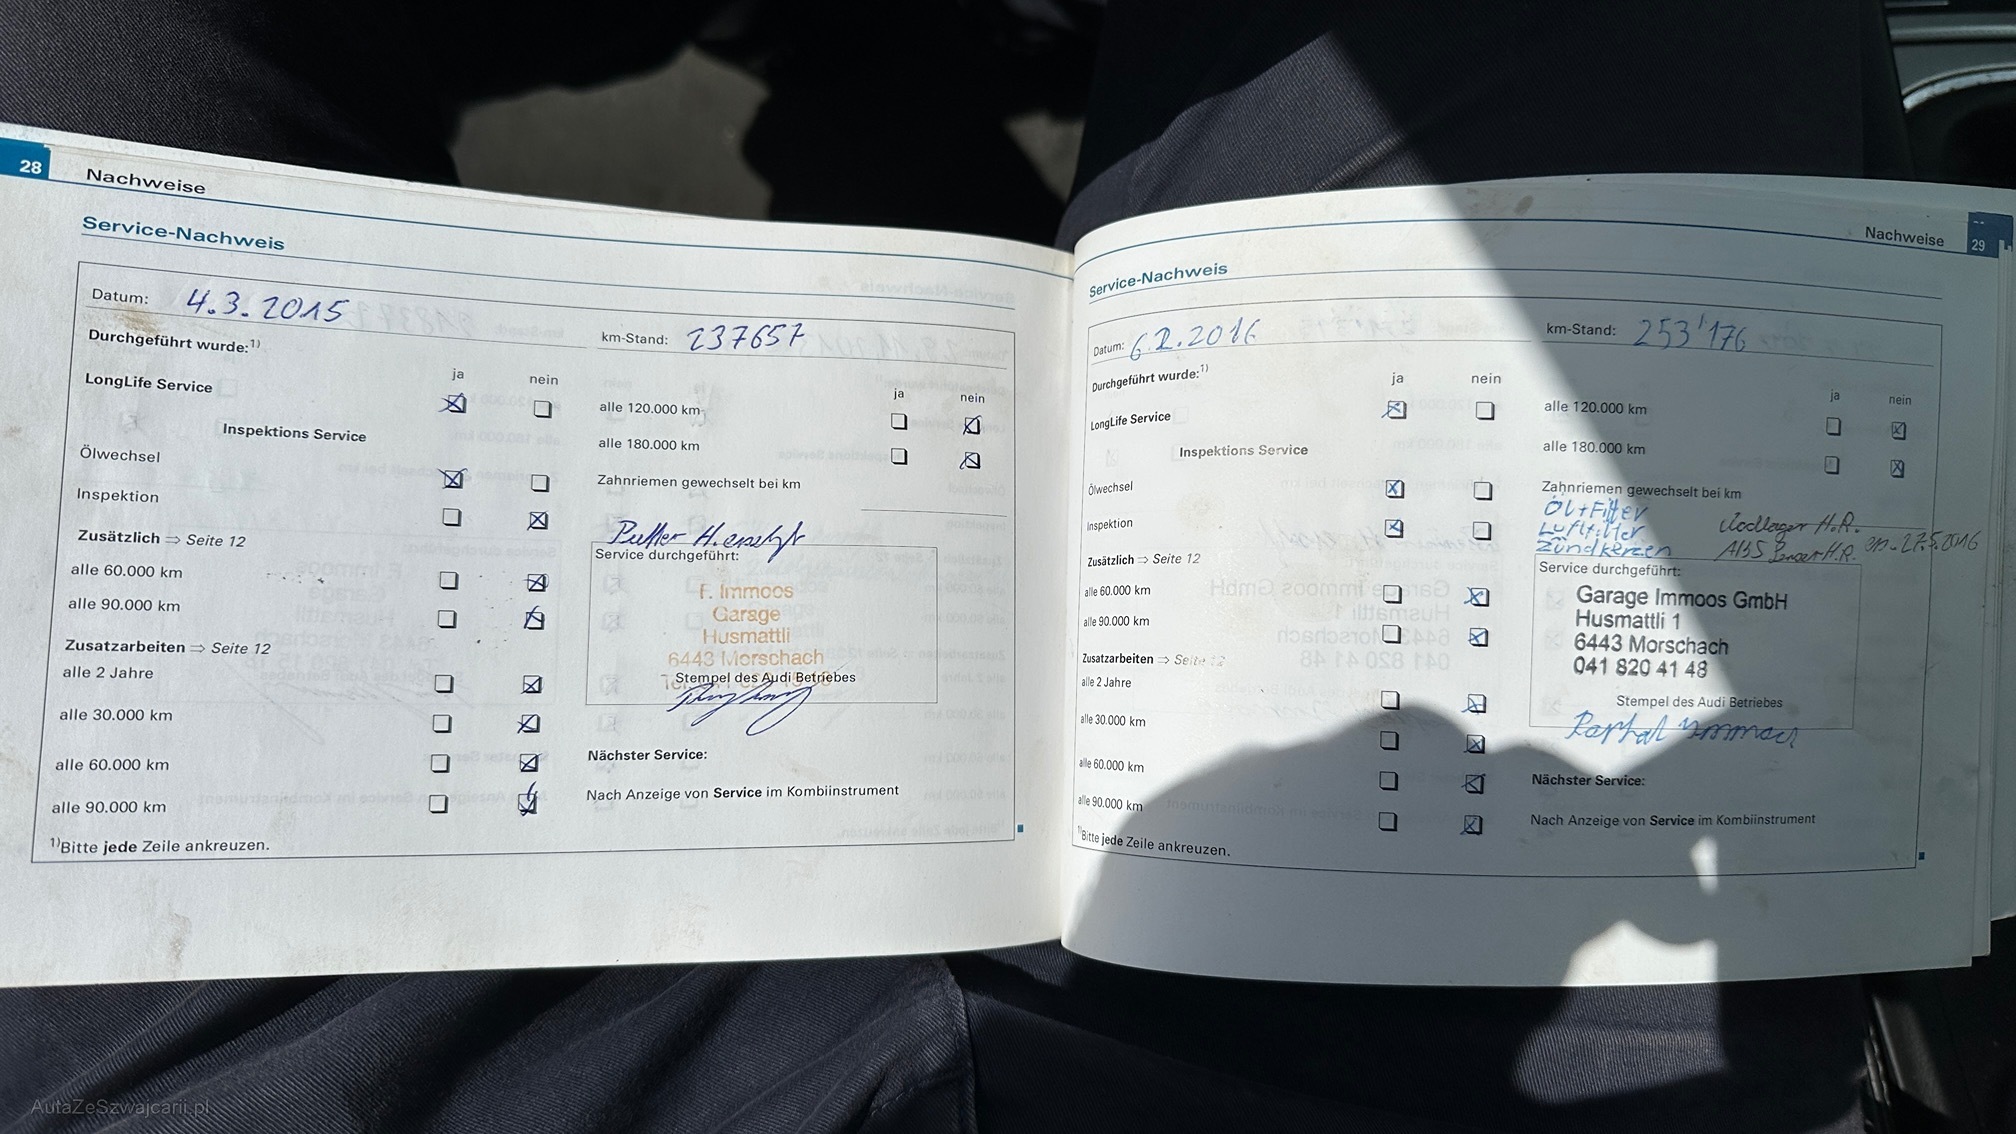 28 Nachweise
Service-Nachweis
Datum: 4.3.2015
km-Stand: 237657
Durchgeführt wurde:1)
ja nein
LongLife Service
Inspektions Service
Ölwechsel
Inspektion
Zusätzlich ⇒ Seite 12
alle 60.000 km
alle 90.000 km
Zusatzarbeiten ⇒ Seite 12
alle 2 Jahre
alle 30.000 km
alle 60.000 km
alle 90.000 km
1)Bitte jede Zeile ankreuzen.
ja nein
alle 120.000 km
alle 180.000 km
Zahnriemen gewechselt bei km
H. ersetzt
Service durchgeführt:
F. Immoos
Garage
Husmattli
6443 Morschach
Stempel des Audi Betriebes
Nächster Service:
Nach Anzeige von Service im Kombiinstrument
Nachweise 29
Service-Nachweis
Datum: 2016
km-Stand: 253'176
Durchgeführt wurde:1)
ja nein
LongLife Service
Inspektions Service
Ölwechsel
Inspektion
Zusätzlich ⇒ Seite 12
alle 60.000 km
alle 90.000 km
Zusatzarbeiten ⇒ Seite 12
alle 2 Jahre
alle 30.000 km
alle 60.000 km
alle 90.000 km
1)Bitte jede Zeile ankreuzen.
ja nein
alle 120.000 km
alle 180.000 km
Zahnriemen gewechselt bei km
Öl+Filter
Luftfilter
Zündkerzen
Radlager H.R.
ABS Sensor H.R. 27.5.2016
Service durchgeführt:
Garage Immoos GmbH
Husmattli 1
6443 Morschach
041 820 41 48
Stempel des Audi Betriebes
Immoos
Nächster Service:
Nach Anzeige von Service im Kombiinstrument
AutaZeSzwajcarii.pl